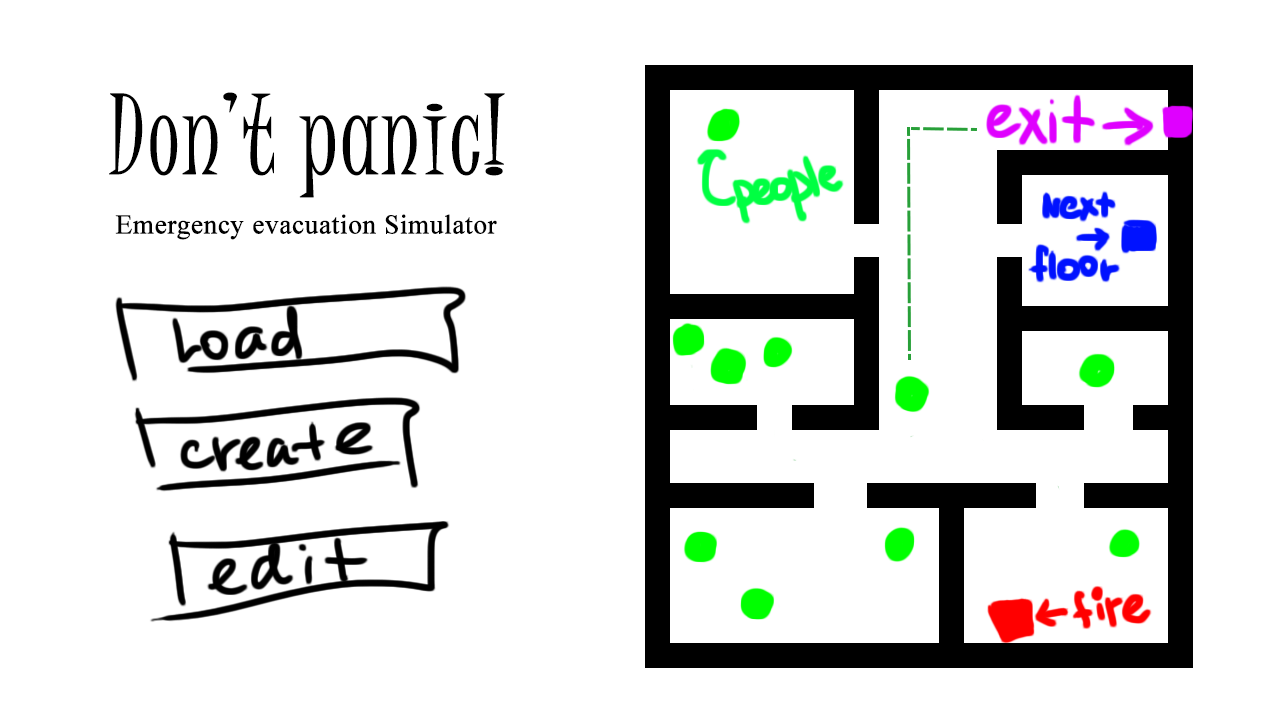 Don't panic!
Emergency evacuation Simulator
Load
create
edit
exit
people
Next
floor
fire